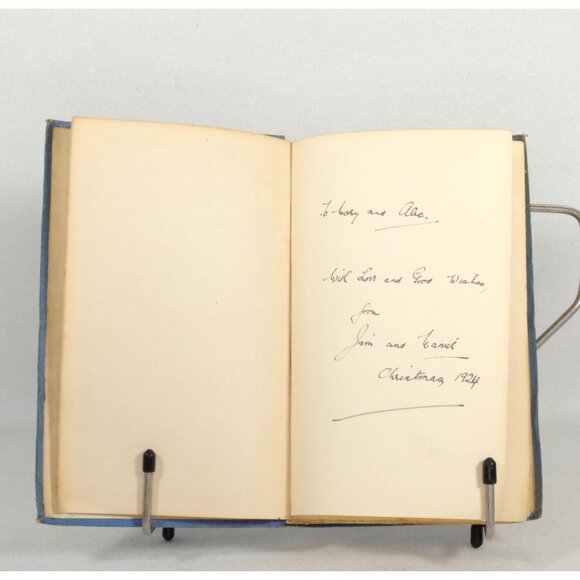 To Mary and Alec.
With Love and Good Wishes,
from
Jim and
Christmas, 1924